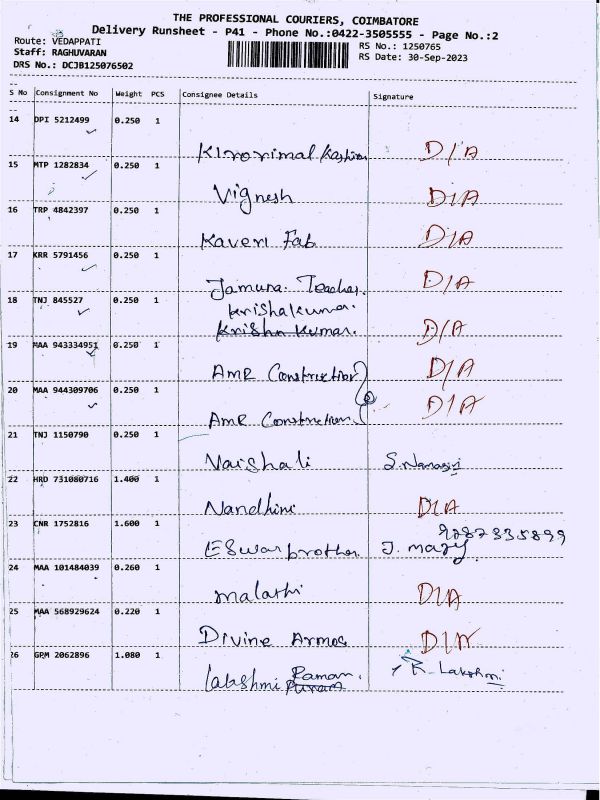 THE PROFESSIONAL COURIERS, COIMBATORE
Delivery Runsheet - P41 - Phone No.:0422-3505555 - Page No.:2
Route: VEDAPPATI
RS No.: 1250765
Staff: RAGHUVARAN
RS Date: 30-Sep-2023
DRS No.: DCJB125076502
S No Consignment No Weight PCS Consignee Details Signature
14 DPI 5212499 0.250 1
Kirorimal D/A
15 MTP 1282834 0.250 1
Vignesh D/A
16 TRP 4842397 0.250 1
Kaveri Fab D/A
17 KRR 5791456 0.250 1
Jamuna. Teacher. D/A
18 TNJ 845527 0.250 1
Krishakumar.
Krishn Kumar. D/A
19 MAA 943334951 0.250 1
AMR Construction D/A
20 MAA 944309706 0.250 1
AMR Construction D/A
21 TNJ 1150790 0.250 1
Vaishali
22 HRD 731080716 1.400 1
Nandhini D/A
23 CNR 1752816 1.600 1
ESwar brother J. mary
24 MAA 101484039 0.260 1
malathi D/A
25 MAA 568929624 0.220 1
Divine Armos D/A
26 GRM 2062896 1.080 1
Raman.
Lakshmi Puram R. Lakshmi